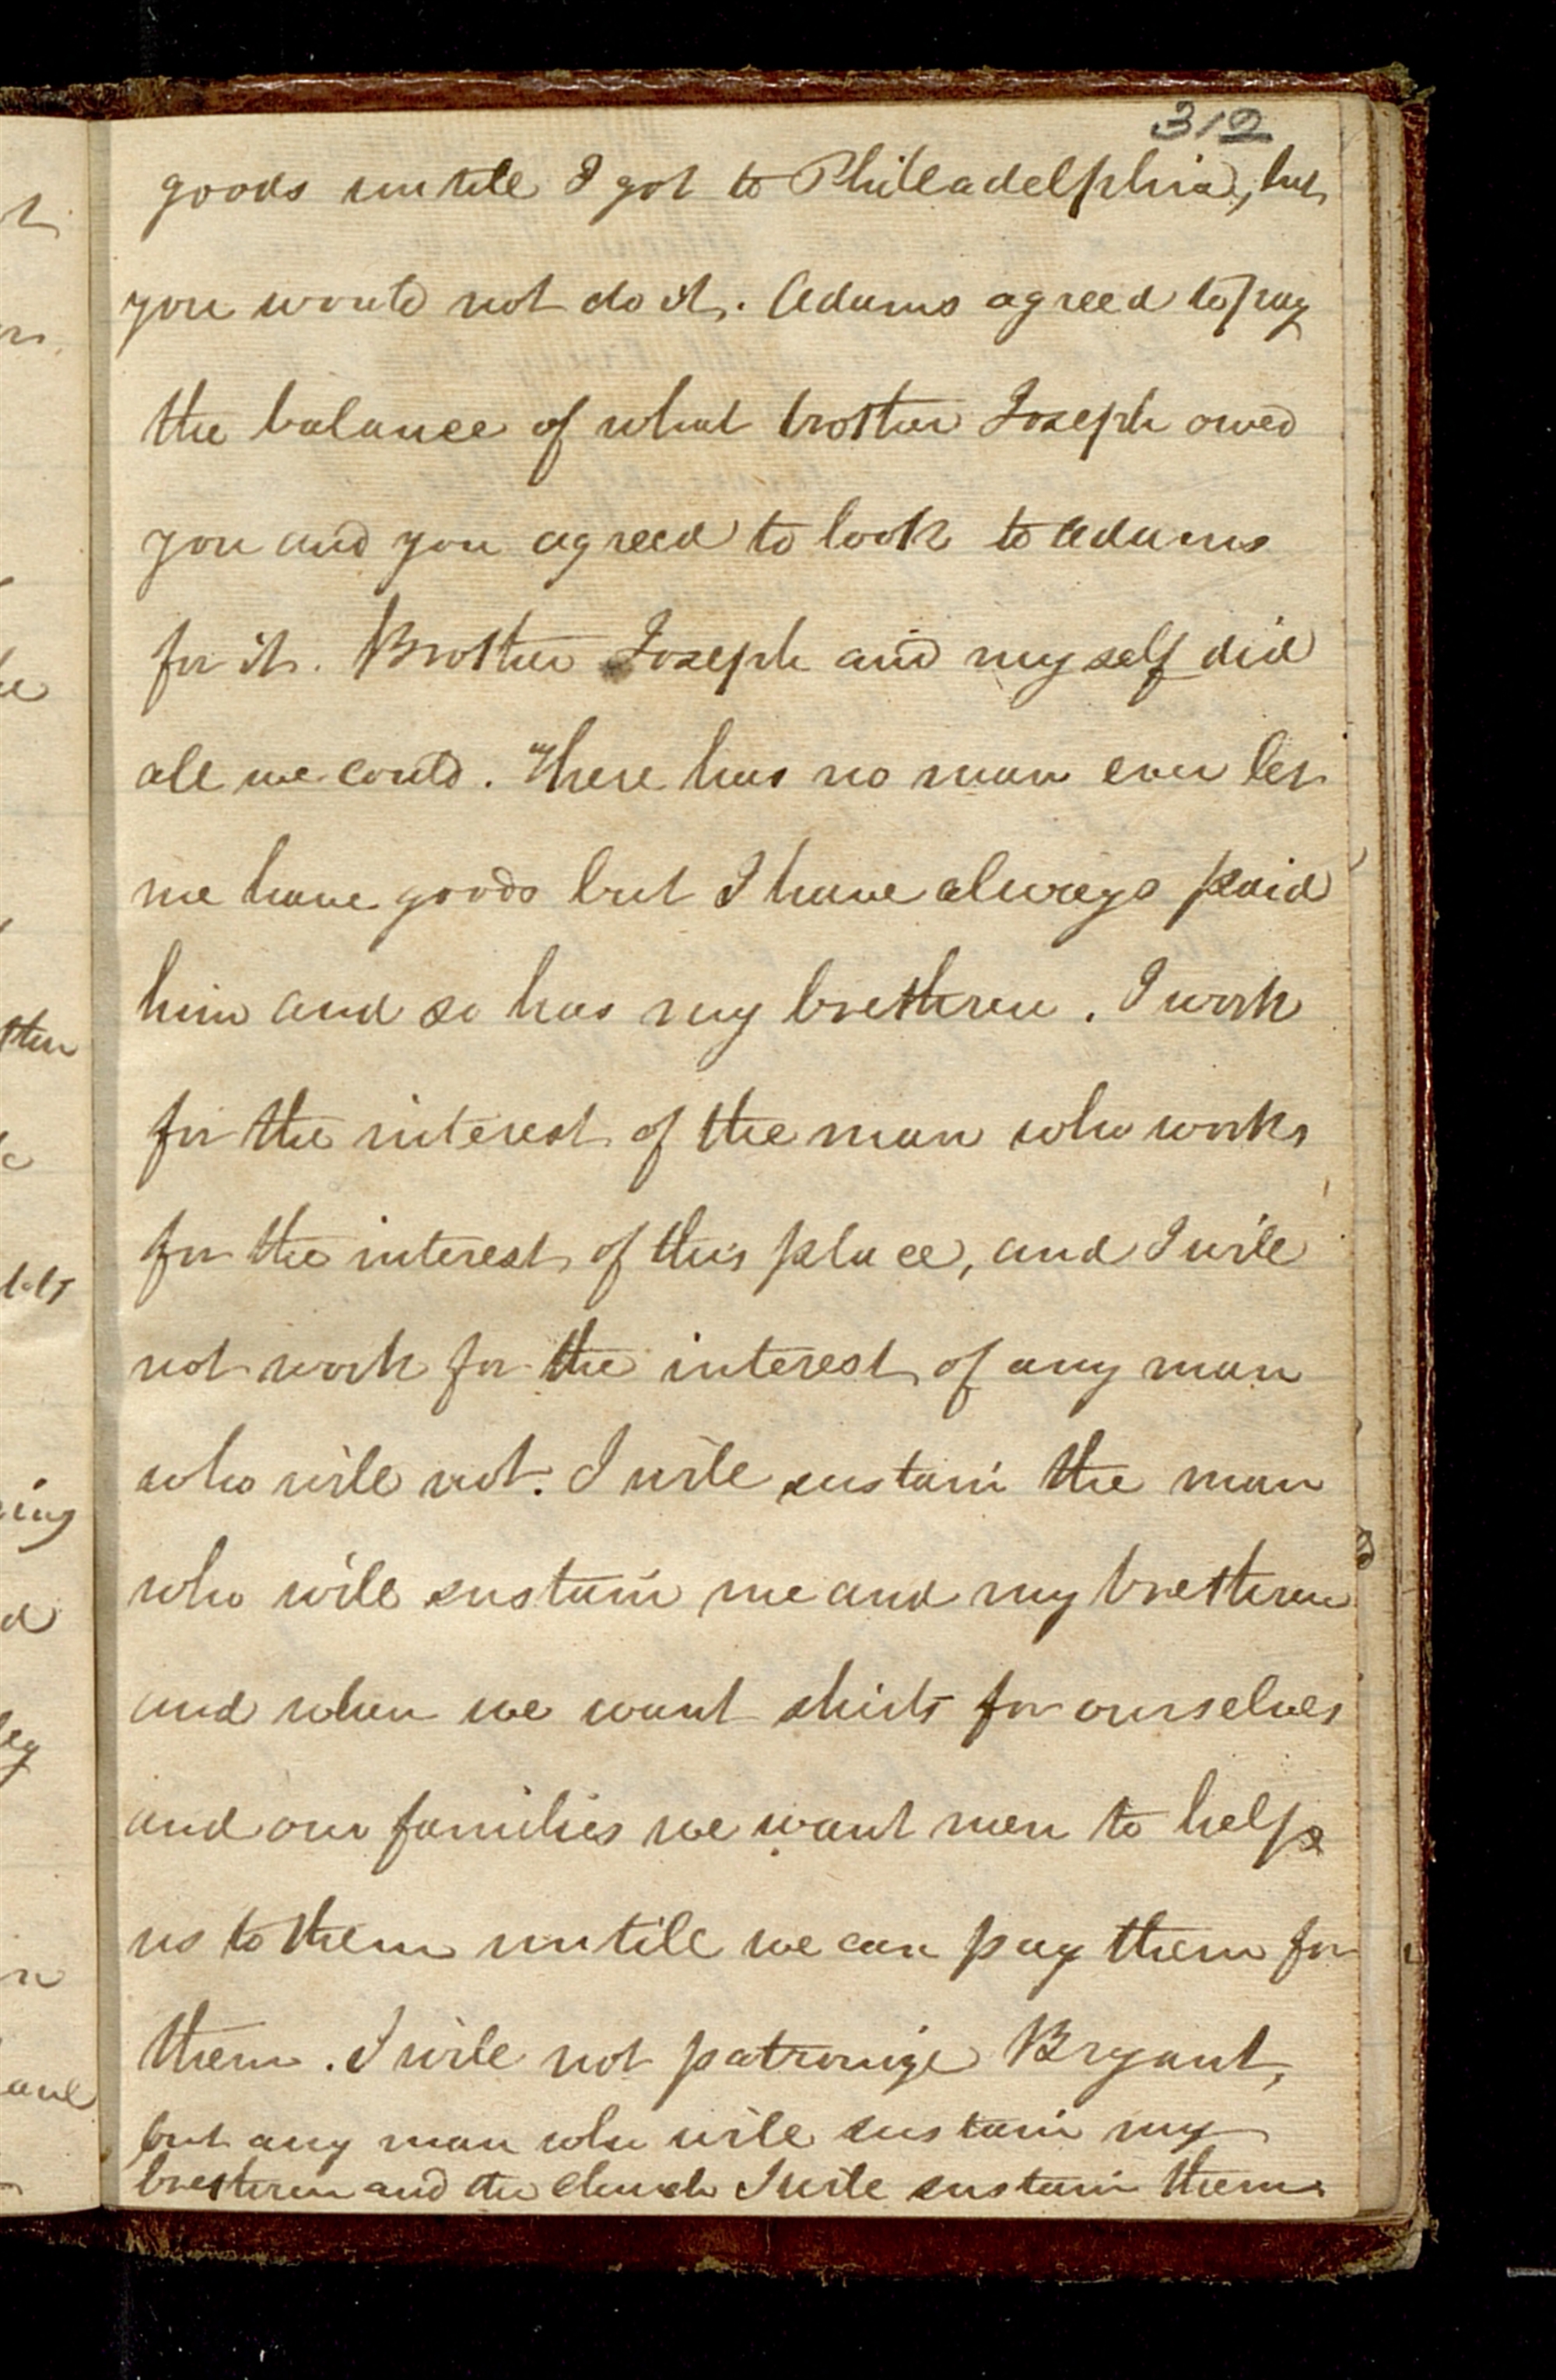 312
goods untill I got to Philleadelphia, but
you would not do it. Adams agreed to pay
the balance of what brother Joseph owed
you and you agreed to look to Adams
for it. Brother Joseph and myself did
all we could. There has no man ever let
me have goods but I have always paid
him and so has my brethren. I work
for the interest of the man who works
for the interest of this place, and I will
not work for the interest of any man
who will not. I will sustain the man
who will sustain me and my brethren
and when we want shirts for ourselves
and our families we want men to help
us to them untill we can pay them for
them. I will not patronize Bryant,
but any man who will sustain my
brethren and the church I will sustain them.